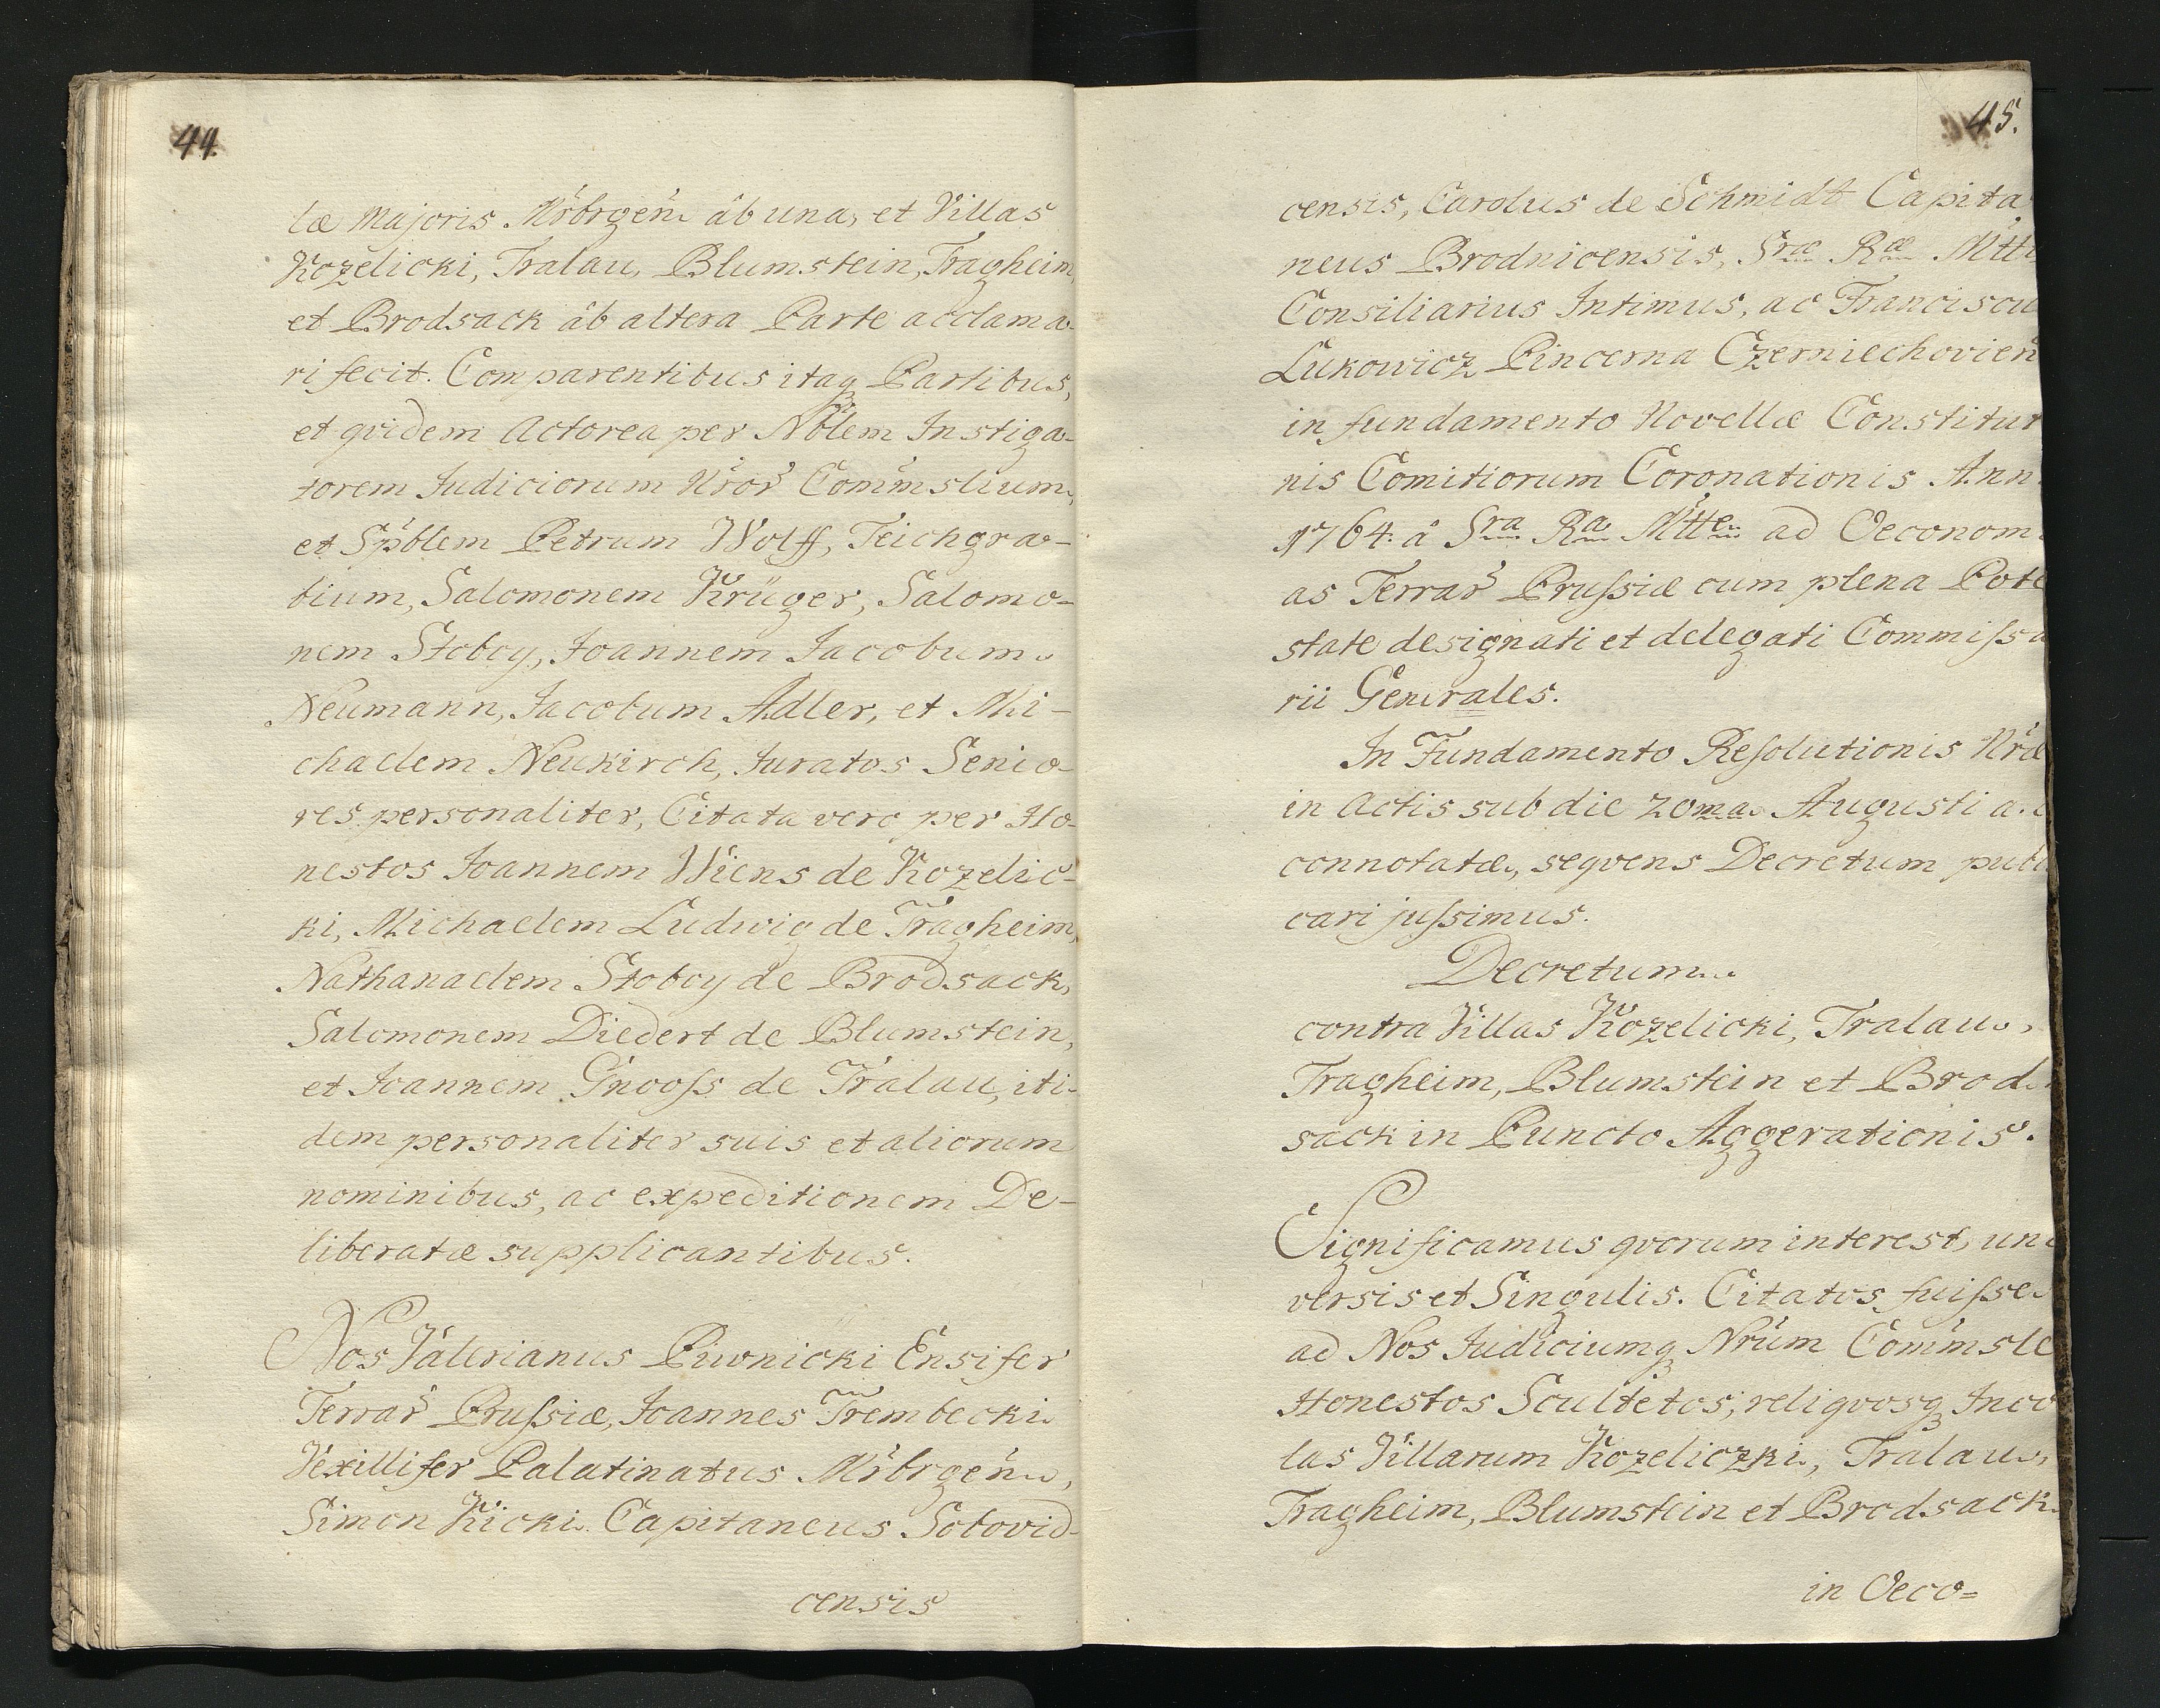 44.
læ Majoris Mrbrgen ab una, et Villas
Kozelicki, Tralau, Blumstein, Tragheim,
et Brodsack ab altera Parte acclama-
ri fecit. Comparentibus itaq Partibus,
et qvidem Actorea per Nblem Instiga-
torem Judiciorum Nror Commslium,
et Spblem Petrum Wolff, Teichgra-
bium, Salomonem Krüger, Salomo-
nem Stoboy, Joannem Jacobum
Neumann, Jacobum Adler, et Mi-
chaelem Neukirch, Juratos Senio-
res personaliter, Citata vero per Ho-
nestos Joannem Wiens de Kozelic-
ki, Michaelem Ludwig de Tragheim,
Nathanaelem Stoboy de Brodsack,
Salomonem Diedert de Blumstein,
et Joannem Gnooss de Tralau, iti-
dem personaliter suis et aliorum
nominibus, ac expeditionem De-
liberatæ supplicantibus.
Nos Valerianus Piwnicki Ensifer
Terrar Prussiæ, Joannes Trembecki
Vexillifer Palatinatus Mrbrgen,
Simon Kicki Capitaneus Sobovid-
censis
45.
censis, Carolus de Schmidt Capita
neus Brodnicensis, Sræ Ræ Mtti
Consiliarius Intimus, ac Franciscu
Lukowicz Pincerna Czerniechovien
in fundamento Novellæ Constitut
nis Comitiorum Coronationis Ann
1764. à Sra Ra Mtte ad Oeconom
as Terrar Prussiæ cum plena Pote
state designati et delegati Commissa
rii Generales.
In Fundamento Resolutionis Nræ
in Actis sub die 20ma Augusti a. c
connotatæ, seqvens Decretum publi
cari jussimus.
Decretum
contra Villas Kozelicki, Tralau,
Tragheim, Blumstein et Brod
sack in Puncto Aggerationis.
Significamus qvorum interest, uni
versis et Singulis. Citatos fuisse
ad Nos Judiciumq Nrum Commsle
Honestos Scultetos, reliqvosq Inco
las Villarum Kozeliczki, Tralau,
Tragheim, Blumstein et Brodsack
in Oeco=